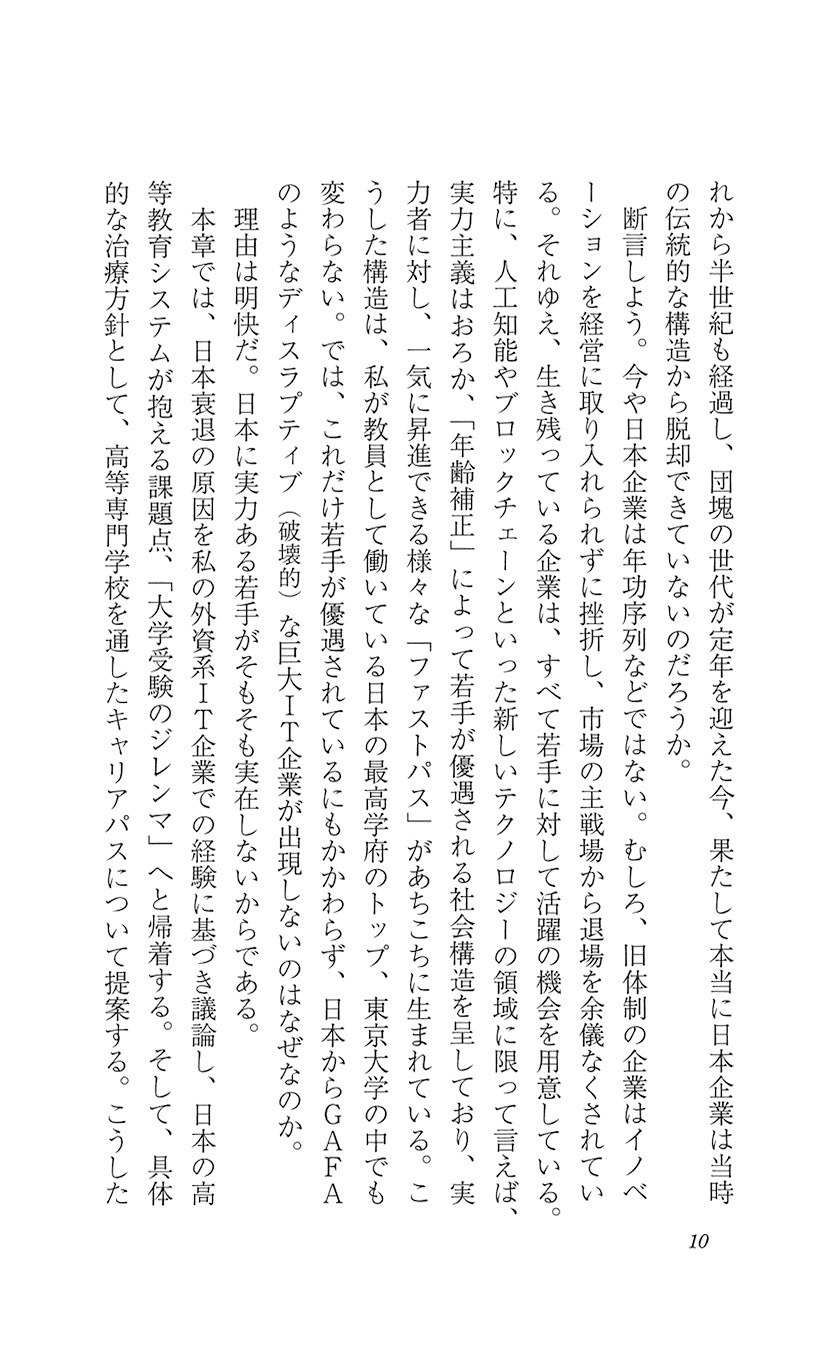 れから半世紀も経過し、団塊の世代が定年を迎えた今、果たして本当に日本企業は当時
の伝統的な構造から脱却できていないのだろうか。
断言しよう。今や日本企業は年功序列などではない。むしろ、旧体制の企業はイノベ
ーションを経営に取り入れられずに挫折し、市場の主戦場から退場を余儀なくされてい
る。それゆえ、生き残っている企業は、すべて若手に対して活躍の機会を用意している。
特に、人工知能やブロックチェーンといった新しいテクノロジーの領域に限って言えば、
実力主義はおろか、「年齢補正」によって若手が優遇される社会構造を呈しており、実
力者に対し、一気に昇進できる様々な「ファストパス」があちこちに生まれている。こ
うした構造は、私が教員として働いている日本の最高学府のトップ、東京大学の中でも
変わらない。では、これだけ若手が優遇されているにもかかわらず、日本からＧＡＦＡ
のようなディスラプティブ（破壊的）な巨大ＩＴ企業が出現しないのはなぜなのか。
理由は明快だ。日本に実力ある若手がそもそも実在しないからである。
本章では、日本衰退の原因を私の外資系ＩＴ企業での経験に基づき議論し、日本の高
等教育システムが抱える課題点、「大学受験のジレンマ」へと帰着する。そして、具体
的な治療方針として、高等専門学校を通したキャリアパスについて提案する。こうした
10